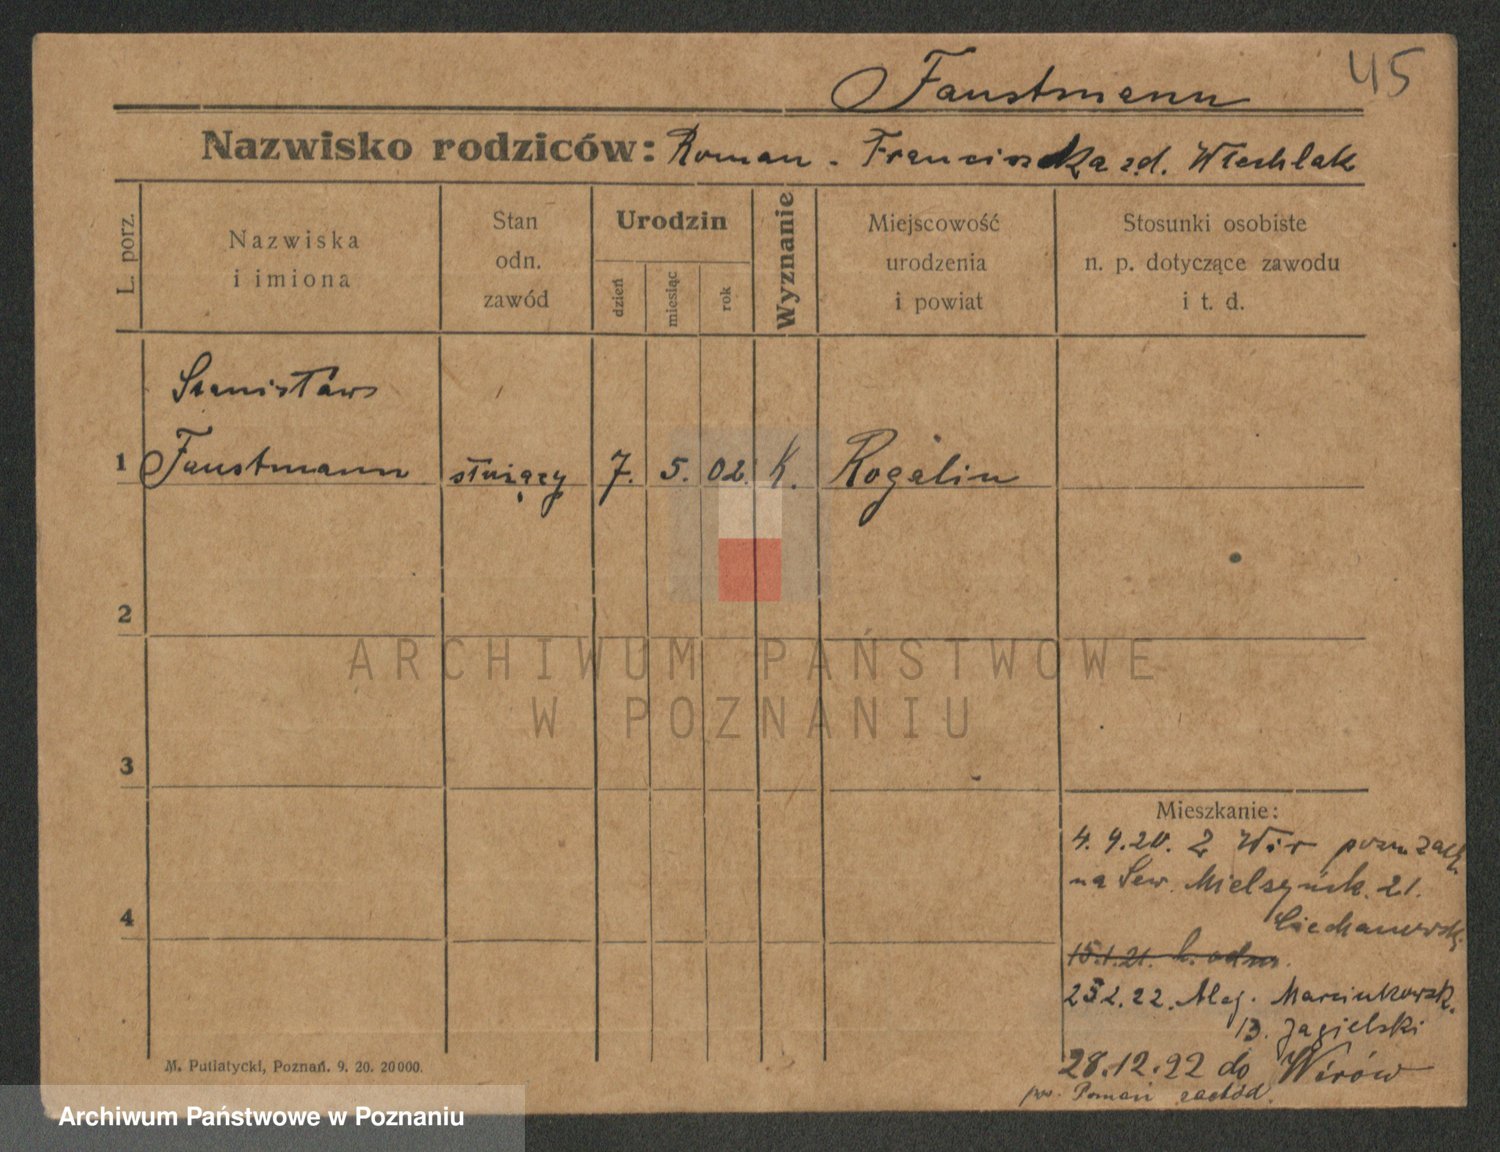 45
Faustmann
Nazwisko rodziców: Roman - Franciszka zd. Włechlak
L. porz.
Nazwiska i imiona
Stan odn. zawód
Urodzin
dzień
miesiąc
rok
Wyznanie
Miejscowość urodzenia i powiat
Stosunki osobiste n. p. dotyczące zawodu i t. d.
Stanisław
1 Faustmann służący 7. 5. 02. K. Rogalin
2
ARCHIWUM PAŃSTWOWE
W POZNANIU
3
Mieszkanie:
4. 9. 20. z Wir pozn. zach.
na Sew. Mielżyńsk. 21.
4
15.1.21.
2.22. Alej. Marcinkowsk.
13. Jagielski
28.12.22 do Wirów
pow. Poznań zachód.
M. Putiatycki, Poznań. 9. 20. 20000.
Archiwum Państwowe w Poznaniu